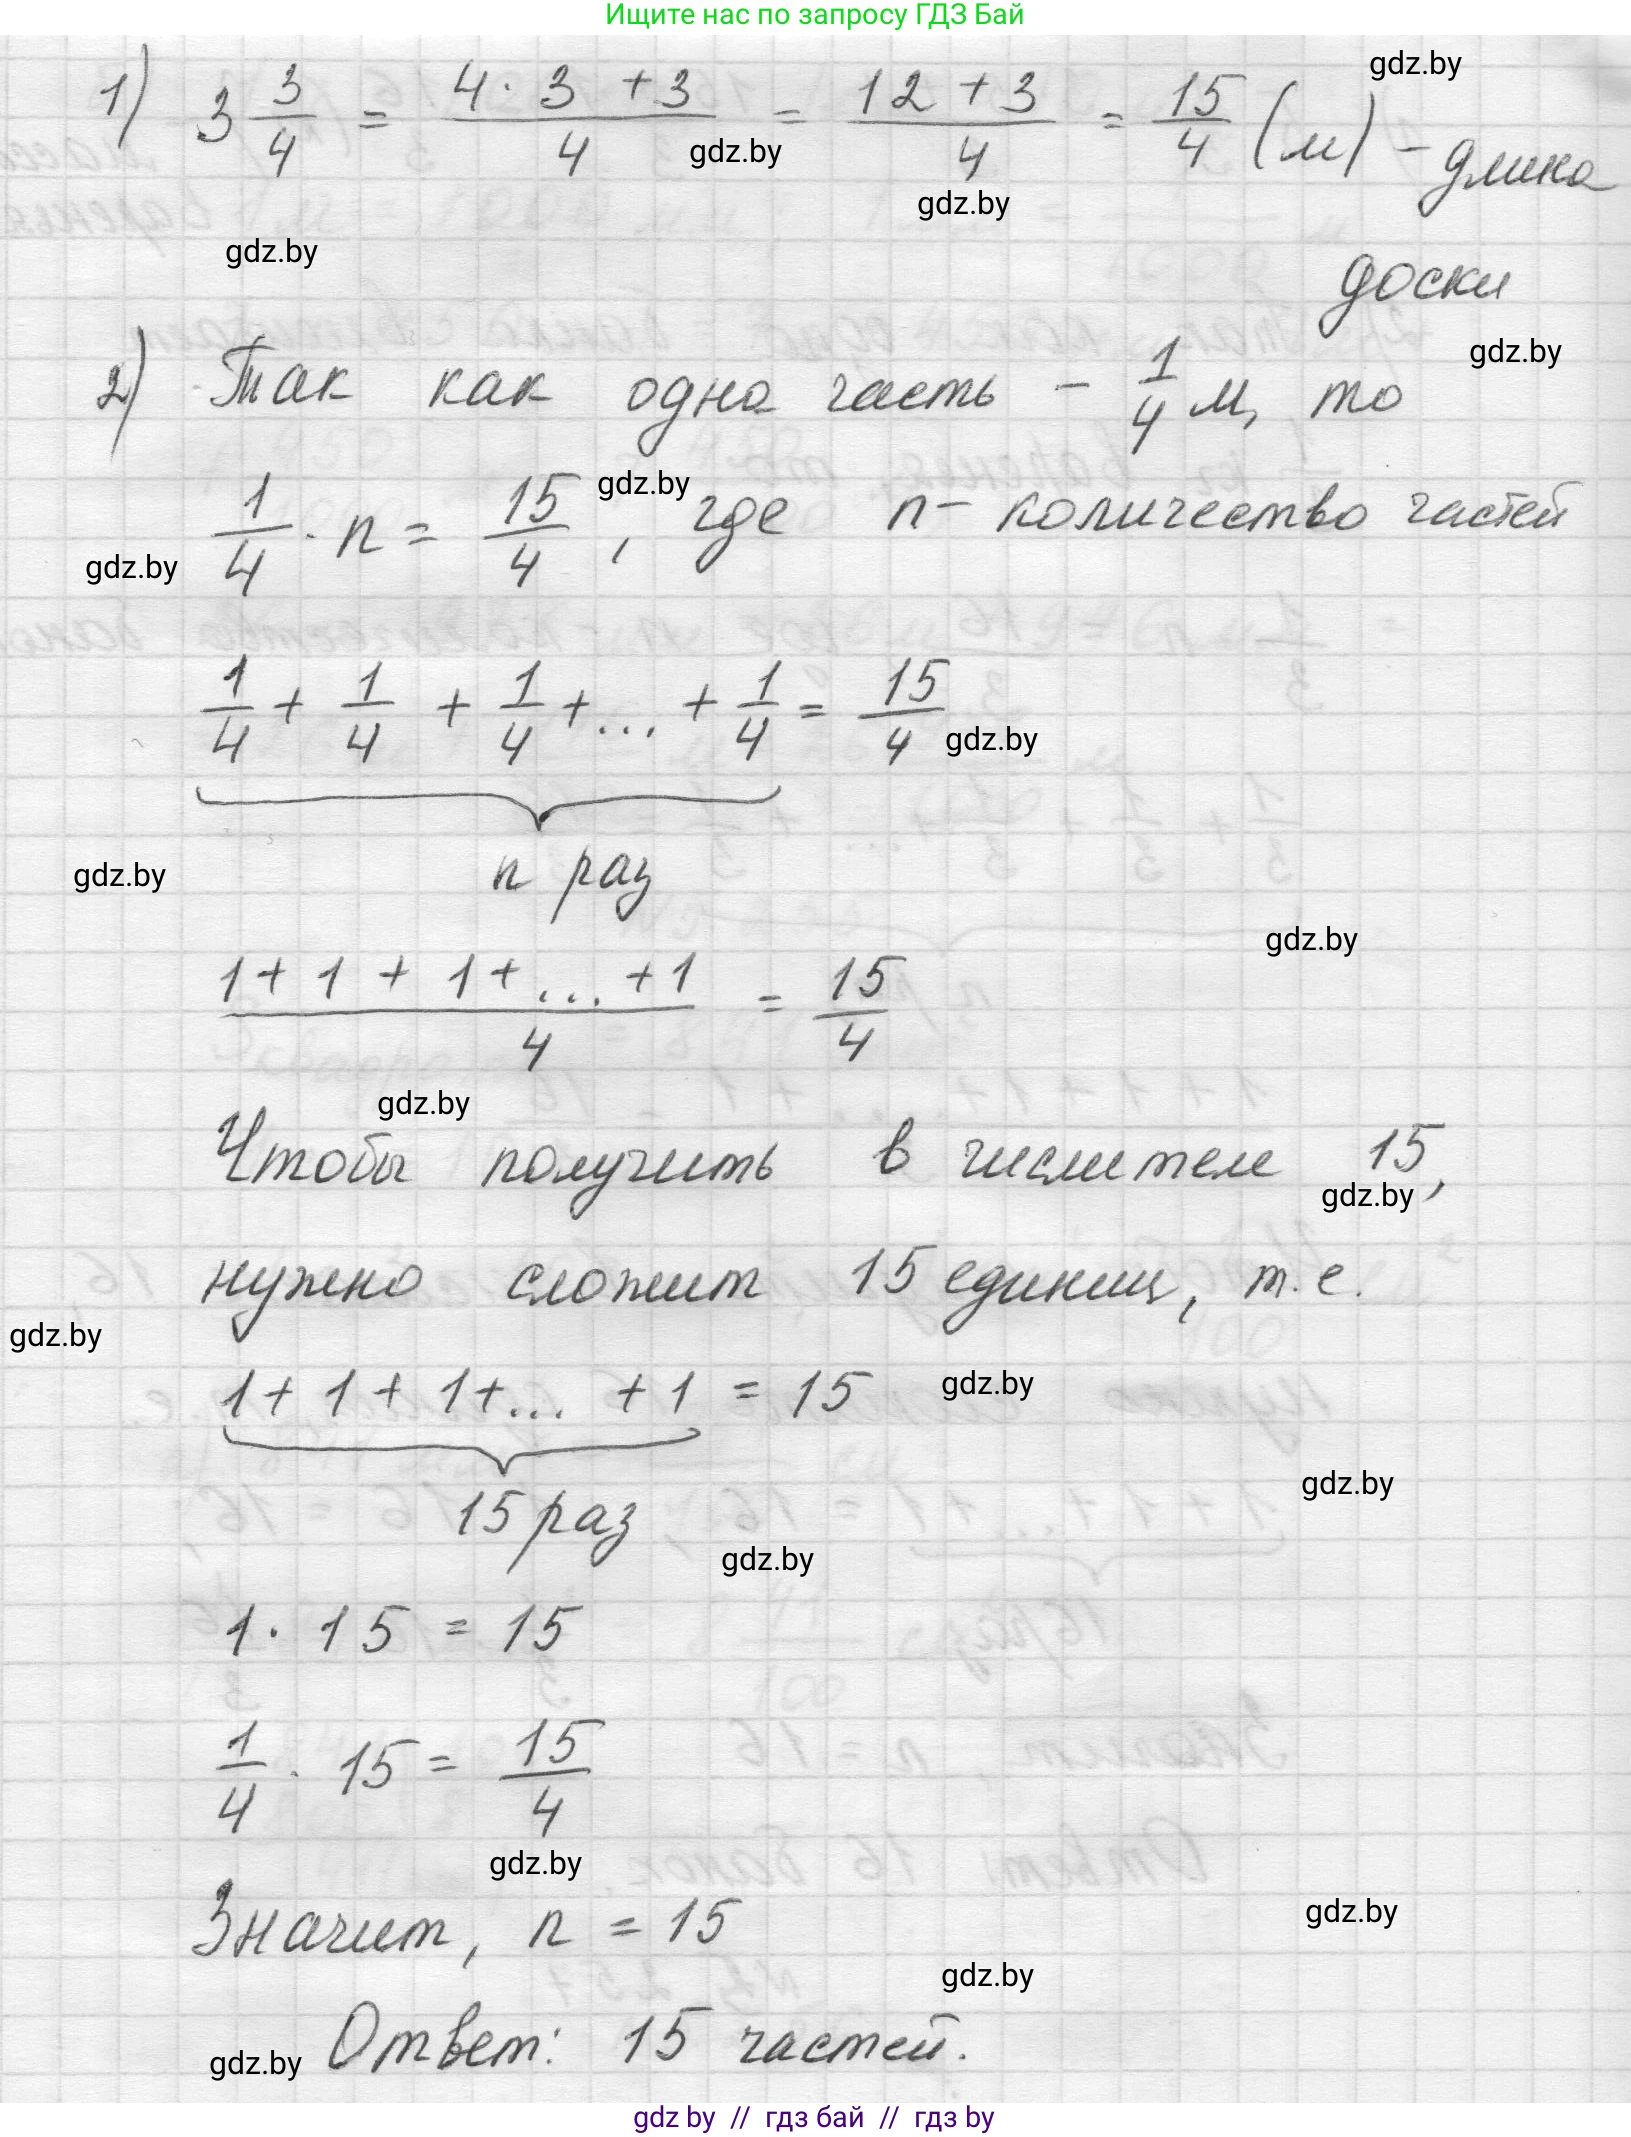 Ищите нас по запросу ГДЗ Бай
gdz.by
1) 3 3/4 = (4 · 3 + 3)/4 = (12 + 3)/4 = 15/4 (м) - длина
gdz.by
gdz.by
gdz.by
доски
gdz.by
2) Так как одна часть - 1/4 м, то
gdz.by
1/4 · n = 15/4, где n - количество частей
gdz.by
1/4 + 1/4 + 1/4 + ... + 1/4 = 15/4
gdz.by
n раз
gdz.by
gdz.by
(1 + 1 + 1 + ... + 1)/4 = 15/4
gdz.by
Чтобы получить в числителе 15,
gdz.by
нужно сложит 15 единиц, т.е.
gdz.by
1 + 1 + 1 + ... + 1 = 15
gdz.by
gdz.by
15 раз
gdz.by
1 · 15 = 15
1/4 · 15 = 15/4
gdz.by
Значит, n = 15
gdz.by
gdz.by
Ответ: 15 частей.
gdz.by
gdz by // гдз бай // гдз by